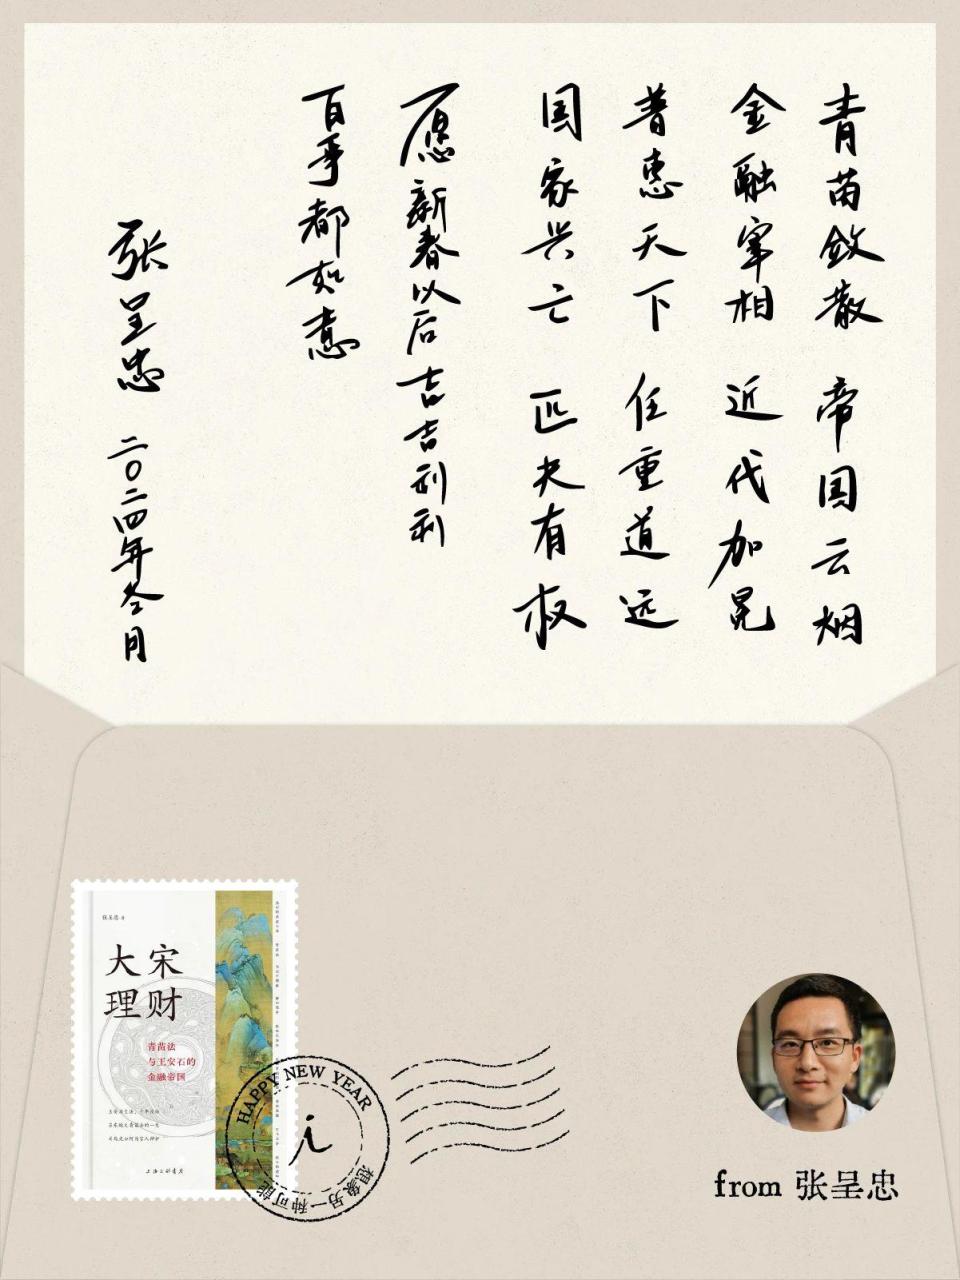 青苗敛散 帝国云烟
金融宰相 近代加冕
普惠天下 任重道远
国家兴亡 匹夫有权
愿新春以后吉吉利利
百事都如意
张呈忠 二〇二四年冬月
张呈忠 著
大宋
理财
青苗法
与王安石的
金融帝国
上海三联书店
HAPPY NEW YEAR
i
想象另一种可能
from 张呈忠